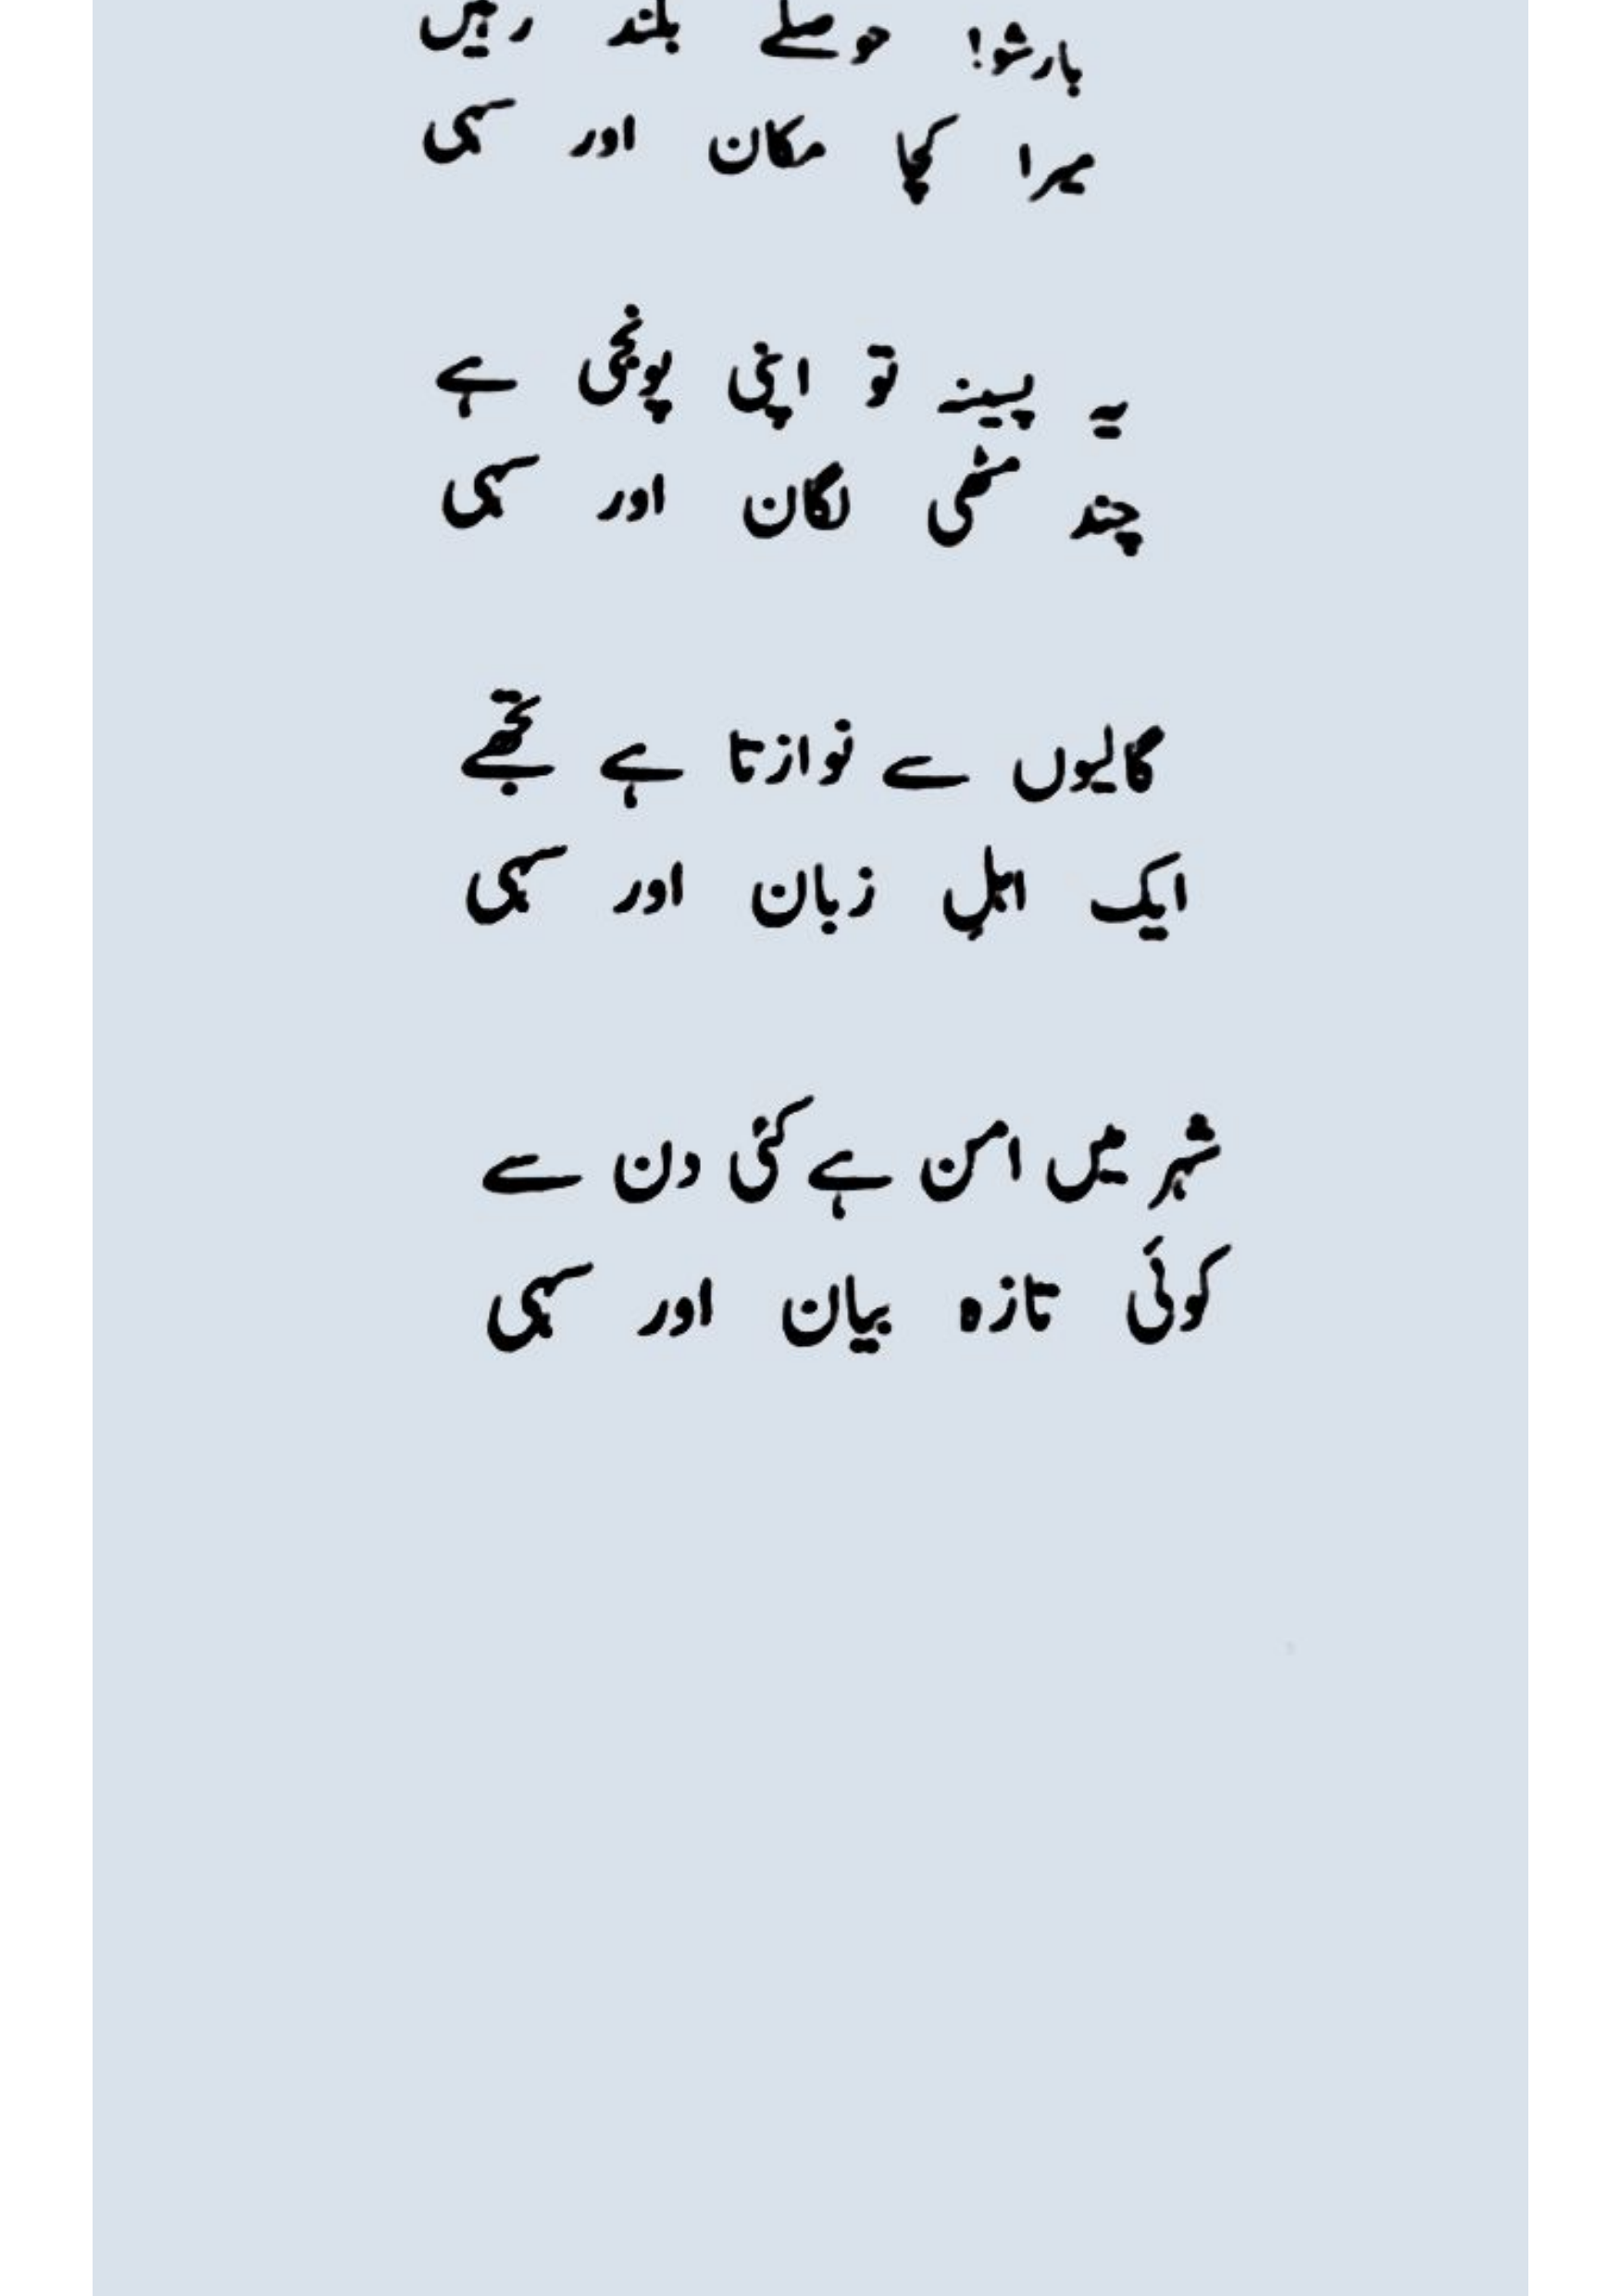 بارشو! حوصلے بلند رہیں
میرا کچا مکان اور سہی
یہ پسینہ تو اپنی پونجی ہے
چند مٹھی لگان اور سہی
گالیوں سے نوازتا ہے تجھے
ایک اہلِ زبان اور سہی
شہر میں امن ہے کئی دن سے
کوئی تازہ بیان اور سہی